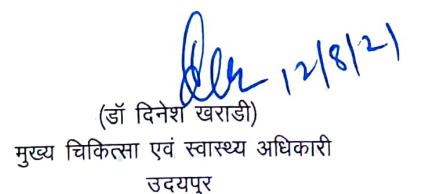 12/8/21
(डॉ दिनेश खराडी)
मुख्य चिकित्सा एवं स्वास्थ्य अधिकारी
उदयपुर